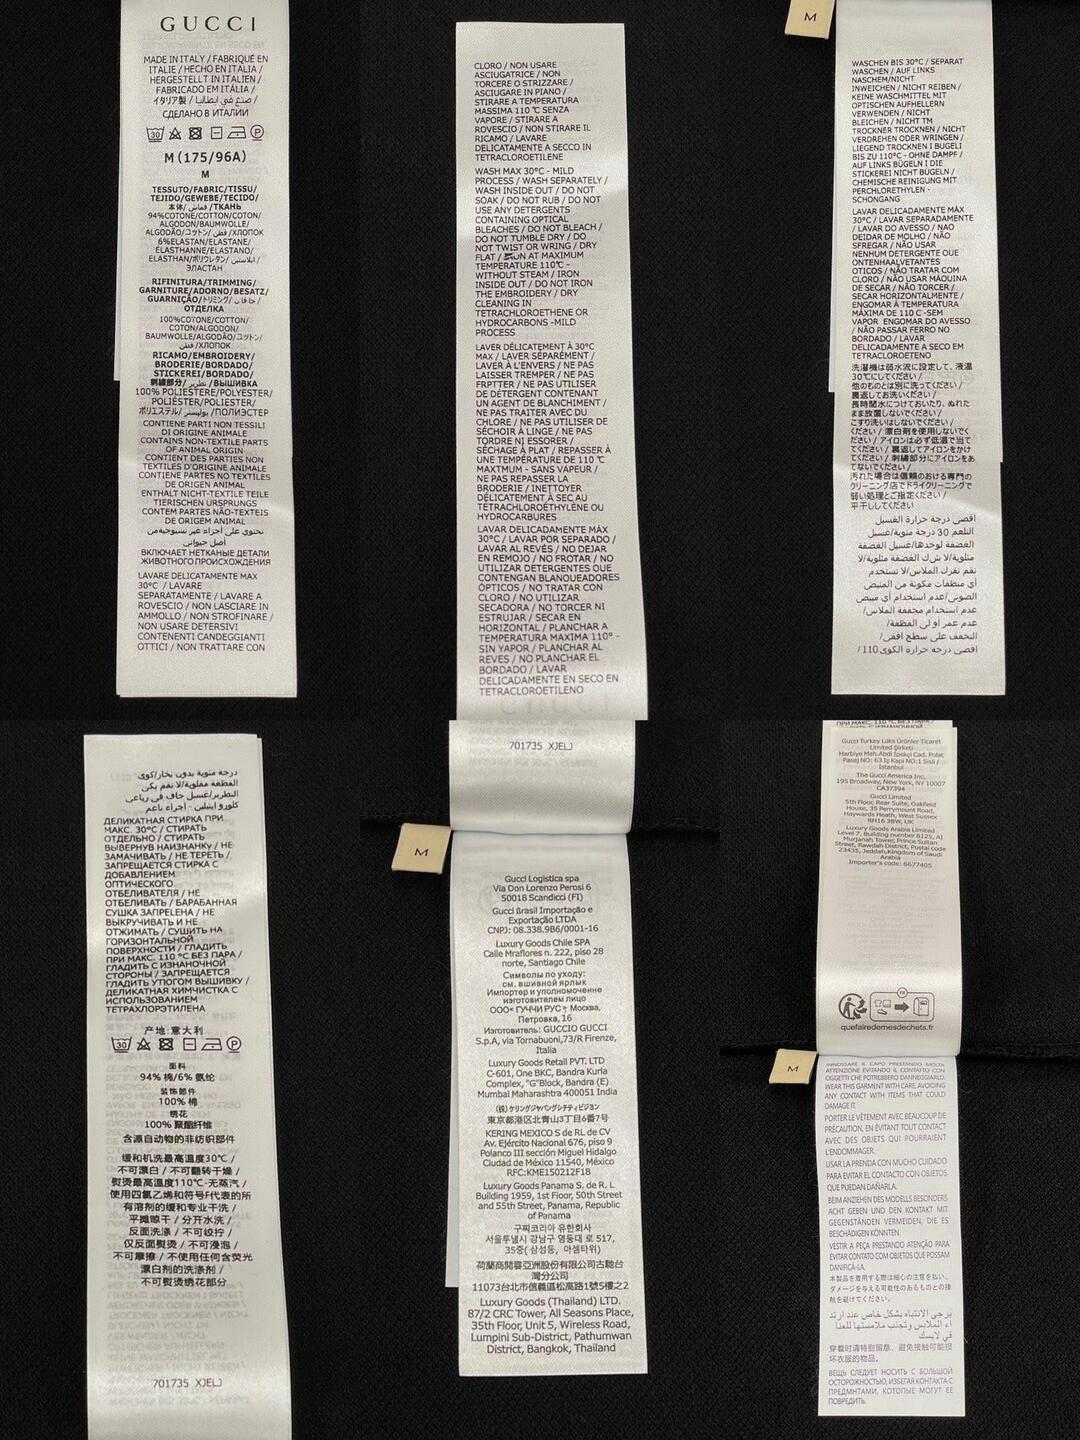 GUCCI
MADE IN ITALY / FABRIQUÉ EN
ITALIE / HECHO EN ITALIA /
HERGESTELLT IN ITALIEN /
FABRICADO EM ITÁLIA /
イタリア製 / صنع في ايطاليا /
СДЕЛАНО В ИТАЛИИ
30
P
M (175/96A)
M
TESSUTO/FABRIC/TISSU/
TEJIDO/GEWEBE/TECIDO/
本体/ قماش /ТКАНЬ
94%COTONE/COTTON/COTON/
ALGODON/BAUMWOLLE/
ALGODÃO/コットン/ قطن /ХЛОПОК
6%ELASTAN/ELASTANE/
ÉLASTHANNE/ELASTANO/
ELASTHAN/ポリウレタン/ ايلاستين/
ЭЛАСТАН
RIFINITURA/TRIMMING/
GARNITURE/ADORNO/BESATZ/
GUARNIÇÃO/トリミング/ حافات /
ОТДЕЛКА
100%COTONE/COTTON/
COTON/ALGODON/
BAUMWOLLE/ALGODÃO/コットン/
قطن /ХЛОПОК
RICAMO/EMBROIDERY/
BRODERIE/BORDADO/
STICKEREI/BORDADO/
刺繍部分/ تطريز /ВЫШИВКА
100% POLIESTERE/POLYESTER/
POLIÉSTER/POLIESTER/
ポリエステル/ بوليستر /ПОЛИЭСТЕР
CONTIENE PARTI NON TESSILI
DI ORIGINE ANIMALE
CONTAINS NON-TEXTILE PARTS
OF ANIMAL ORIGIN
CONTIENT DES PARTIES NON
TEXTILES D'ORIGINE ANIMALE
CONTIENE PARTES NO TEXTILES
DE ORIGEN ANIMAL
ENTHALT NICHT-TEXTILE TEILE
TIERISCHEN URSPRUNGS
CONTEM PARTES NÃO-TEXTEIS
DE ORIGEM ANIMAL
تحتوي على أجزاء غير نسيوجية من
أصل حيواني
ВКЛЮЧАЕТ НЕТКАНЫЕ ДЕТАЛИ
ЖИВОТНОГО ПРОИСХОЖДЕНИЯ
LAVARE DELICATAMENTE MAX
30°C / LAVARE
SEPARATAMENTE / LAVARE A
ROVESCIO / NON LASCIARE IN
AMMOLLO / NON STROFINARE /
NON USARE DETERSIVI
CONTENENTI CANDEGGIANTI
OTTICI / NON TRATTARE CON
CLORO / NON USARE
ASCIUGATRICE / NON
TORCERE O STRIZZARE /
ASCIUGARE IN PIANO /
STIRARE A TEMPERATURA
MASSIMA 110 °C SENZA
VAPORE / STIRARE A
ROVESCIO / NON STIRARE IL
RICAMO / LAVARE
DELICATAMENTE A SECCO IN
TETRACLOROETILENE
WASH MAX 30°C - MILD
PROCESS / WASH SEPARATELY /
WASH INSIDE OUT / DO NOT
SOAK / DO NOT RUB / DO NOT
USE ANY DETERGENTS
CONTAINING OPTICAL
BLEACHES / DO NOT BLEACH /
DO NOT TUMBLE DRY / DO
NOT TWIST OR WRING / DRY
FLAT / AT MAXIMUM
TEMPERATURE 110°C -
WITHOUT STEAM / IRON
INSIDE OUT / DO NOT IRON
THE EMBROIDERY / DRY
CLEANING IN
TETRACHLOROETHENE OR
HYDROCARBONS -MILD
PROCESS
LAVER DÉLICATEMENT À 30°C
MAX / LAVER SÉPARÉMENT /
LAVER À L'ENVERS / NE PAS
LAISSER TREMPER / NE PAS
FRPTTER / NE PAS UTILISER
DE DÉTERGENT CONTENANT
UN AGENT DE BLANCHIMENT /
NE PAS TRAITER AVEC DU
CHLORE / NE PAS UTILISER DE
SÉCHOIR À LINGE / NE PAS
TORDRE NI ESSORER /
SÉCHAGE À PLAT / REPASSER À
UNE TEMPÉRATURE DE 110 °C
MAXTMUM - SANS VAPEUR /
NE PAS REPASSER LA
BRODERIE / INETTOYER
DÉLICATEMENT À SEC AU
TÉTRACHLOROÉTHYLÈNE OU
HYDROCARBURES
LAVAR DELICADAMENTE MÁX
30°C / LAVAR POR SEPARADO /
LAVAR AL REVÉS / NO DEJAR
EN REMOJO / NO FROTAR / NO
UTILIZAR DETERGENTES QUE
CONTENGAN BLANOUEADORES
ÓPTICOS / NO TRATAR CON
CLORO / NO UTILIZAR
SECADORA / NO TORCER NI
ESTRUJAR / SECAR EN
HORIZONTAL / PLANCHAR A
TEMPERATURA MAXIMA 110° -
SIN YAPOR / PLANCHAR AL
REVES / NO PLANCHAR EL
BORDADO / LAVAR
DELICADAMENTE EN SECO EN
TETRACLOROETILENO
M
WASCHEN BIS 30°C / SEPARAT
WASCHEN / AUF LINKS
NASCHEM/NICHT
INWEICHEN / NICHT REIBEN /
KEINE WASCHMITTEL MIT
OPTISCHEN AUFHELLERN
VERWENDEN / NICHT
BLEICHEN / NICHT TM
TROCKNER TROCKNEN / NICHT
VERDREHEN ODER WRINGEN /
LIEGEND TROCKNEN I BUGELI
BIS ZU 110°C - OHNE DAMPF /
AUF LINKS BÜGELN I DIE
STICKEREI NICHT BÜGELN /
CHEMISCHE REINIGUNG MIT
PERCHLORETHYLEN -
SCHONGANG
LAVAR DELICADAMENTE MÁX
30°C / LAVAR SEPARADAMENTE
/ LAVAR DO AVESSO / NAO
DEIDAR DE MOLHO / NÃO
SFREGAR / NÃO USAR
NENHUM DETERGENTE QUE
ONTENHAALVETANTES
OTICOS / NÃO TRATAR COM
CLORO / NÃO USAR MÁQUINA
DE SECAR / NÃO TORCER /
SECAR HORIZONTALMENTE /
ENGOMAR À TEMPERATURA
MÁXIMA DE 110 C -SEM
VAPOR ENGOMAR DO AVESSO
/ NÃO PASSAR FERRO NO
BORDADO / LAVAR
DELICADAMENTE A SECO EM
TETRACLOROETENO
洗濯機は弱水流に設定して、液温
30℃にしてください /
他のものとは別に洗ってください /
裏返してお洗いください /
長時間水につけておいたり、ぬれた
まま放置しないでください /
こすり洗いはしないでください /
ください / 漂白剤を使用しないでく
ださい / アイロンは必ず低温で当て
てください / 裏返してアイロンをかけ
てください / 刺繍部分にアイロンをあ
てないでください /
汚れた場合は信頼のおける専門の
クリーニング店でドライクリーニングで
弱い処理とご指定ください /
平干ししてください
اقصى درجة حرارة الغسيل
التلعم 30 درجة مئوية/عسيل
الفضفة لوحدها/عسيل الفضفة
أي منظفات مكونة من المبيض
عدم استخدام مجففة الملابس/
اقصى درجه حرارة الكوى 110/
درجة مئوية بدون بخار/كوى
ДЕЛИКАТНАЯ СТИРКА ПРИ
МАКС. 30°C / СТИРАТЬ
ОТДЕЛЬНО / СТИРАТЬ
ВЫВЕРНУВ НАИЗНАНКУ / НЕ
ЗАМАЧИВАТЬ / НЕ ТЕРЕТЬ /
ЗАПРЕЩАЕТСЯ СТИРКА С
ДОБАВЛЕНИЕМ
ОПТИЧЕСКОГО
ОТБЕЛИВАТЕЛЯ / НЕ
ОТБЕЛИВАТЬ / БАРАБАННАЯ
СУШКА ЗАПРЕЛЕНА / НЕ
ВЫКРУЧИВАТЬ И НЕ
ОТЖИМАТЬ / СУШИТЬ НА
ГОРИЗОНТАЛЬНОЙ
ПОВЕРХНОСТИ / ГЛАДИТЬ
ПРИ МАКС. 110 °С БЕЗ ПАРА /
ГЛАДИТЬ С ИЗНАНОЧНОЙ
СТОРОНЫ / ЗАПРЕЩАЕТСЯ
ГЛАДИТЬ УТЮГОМ ВЫШИВКУ /
ДЕЛИКАТНАЯ ХИМЧИСТКА С
ИСПОЛЬЗОВАНИЕМ
ТЕТРАХЛОРЭТИЛЕНА
产地:意大利
30
P
面料
94% 棉/6% 氨纶
装饰部件
100% 棉
绣花
100% 聚酯纤维
含源自动物的非纺织部件
缓和机洗最高温度30℃ /
不可漂白 / 不可翻转干燥 /
熨烫最高温度110℃-无蒸汽 /
使用四氯乙烯和符号F代表的所
有溶剂的缓和专业干洗 /
平摊晾干 / 分开水洗 /
反面洗涤 / 不可绞拧 /
仅反面熨烫 / 不可浸泡 /
不可摩擦 / 不使用任何含荧光
漂白剂的洗涤剂 /
不可熨烫绣花部分
701735 XJELJ
701735 XJELJ
M
Gucci Logistica spa
Via Don Lorenzo Perosi 6
50018 Scandicci (FI)
Gucci Brasil Importação e
Exportação LTDA
CNPJ: 08.338.9B6/0001-16
Luxury Goods Chile SPA
Calle Mraflores n. 222, piso 28
norte, Santiago Chile
Символы по уходу:
см. вшивной ярлык
Импортер и уполномочение
изготовителем лицо
ООО« ГУЧЧИ РУС » Москва,
Петровка, 16
Изготовитель: GUCCIO GUCCI
S.p.A, via Tornabuoni,73/R Firenze,
Italia
Luxury Goods Retail PVT. LTD
C-601, One BKC, Bandra Kuria
Complex, "G"Block, Bandra (E)
Mumbai Maharashtra 400051 India
(株) ケリングジャパングシチディビジョン
東京都港区北青山3丁目6番7号
KERING MEXICO S de RL de CV
Av. Ejército Nacional 676, piso 9
Polanco III sección Miguel Hidalgo
Ciudad de México 11540, México
RFC:KME150212F18
Luxury Goods Panama S. de R. L
Building 1959, 1st Floor, 50th Street
and 55th Street, Panama, Republic
of Panama
구찌코리아 유한회사
서울특별시 강남구 영동대로 517,
35층( 삼성동, 아셈타워)
荷蘭商開雲亞洲股份有限公司古馳台
灣分公司
11073台北市信義區松高路1號5樓之2
Luxury Goods (Thailand) LTD.
87/2 CRC Tower, All Seasons Place,
35th Floor, Unit 5, Wireless Road,
Lumpini Sub-District, Pathumwan
District, Bangkok, Thailand
ПРИ МАКС. 110 °С БЕЗ ПАРА /
Gucci Turkey Lüks Ürünler Ticaret
Limited Şirketi
Harbiye Mah.Abdi İpekçi Cad. Polat
Pasaj NO: 63 İç Kapi NO:1 Sisli /
Istanbul
The Gucci America Inc,
195 Broadway, New York, NY 10007
CA37394
Gucci Limited
5th Floor, Rear Suite, Oakfield
House, 35 Perrymount Road,
Haywards Heath, West Sussex
RH16 3BW, UK
Luxury Goods Arabia Limited
Level 7, Building number 8125, Al
Murjanah Tower, Prince Sultan
Street, Rawdah District, Postal code
23435, Jeddah,Kingdom of Saudi
Arabia
Importer's code: 6677405
FR
quefairedemesdechets.fr
M
INDOSSARE IL CAPO PRESTANDO MOLTA
ATTENZIONE EVITANDO IL CONTATTO CON
OGGETTI CHE POTREBBERO DANNEGGIARLO.
WEAR THIS GARMENT WITH CARE, AVOIDING
ANY CONTACT WITH ITEMS THAT COULD
DAMAGE IT.
PORTER LE VÊTEMENT AVEC BEAUCOUP DE
PRÉCAUTION, EN ÉVITANT TOUT CONTACT
AVEC DES OBJETS QUI POURRAIENT
L'ENDOMMAGER.
USAR LA PRENDA CON MUCHO CUIDADO
PARA EVITAR EL CONTACTO CON OBJETOS
QUE PUEDAN DAÑARLA.
BEIM ANZIEHEN DES MODELLS BESONDERS
ACHT GEBEN UND DEN KONTAKT MIT
GEGENSTÄNDEN VERMEIDEN, DIE ES
BESCHÄDIGEN KÖNNTEN.
VESTIR A PEÇA PRESTANDO ATENÇÃO PARA
EVITAR CONTATO COM OBJETOS QUE POSSAM
DANIFICÁ-LA.
本製品を着用する際は細心の注意を払い、
ダメージを与える可能性のあるものとの接
触を避けてください。
يرجى الانتباه بشكل خاص عند ارتد
اء الملابس وتجنب ملامستها للعنا
穿着时请特别留意，避免接触可能损
坏衣服的物品。
ВЕЩЬ СЛЕДУЕТ НОСИТЬ С БОЛЬШОЙ
ОСТОРОЖНОСТЬЮ, ИЗБЕГАЯ КОНТАКТА С
ПРЕДМНТАМИ, КОТОПЫЕ МОГУТ ЕЕ
ПОВРЕДИТЬ.